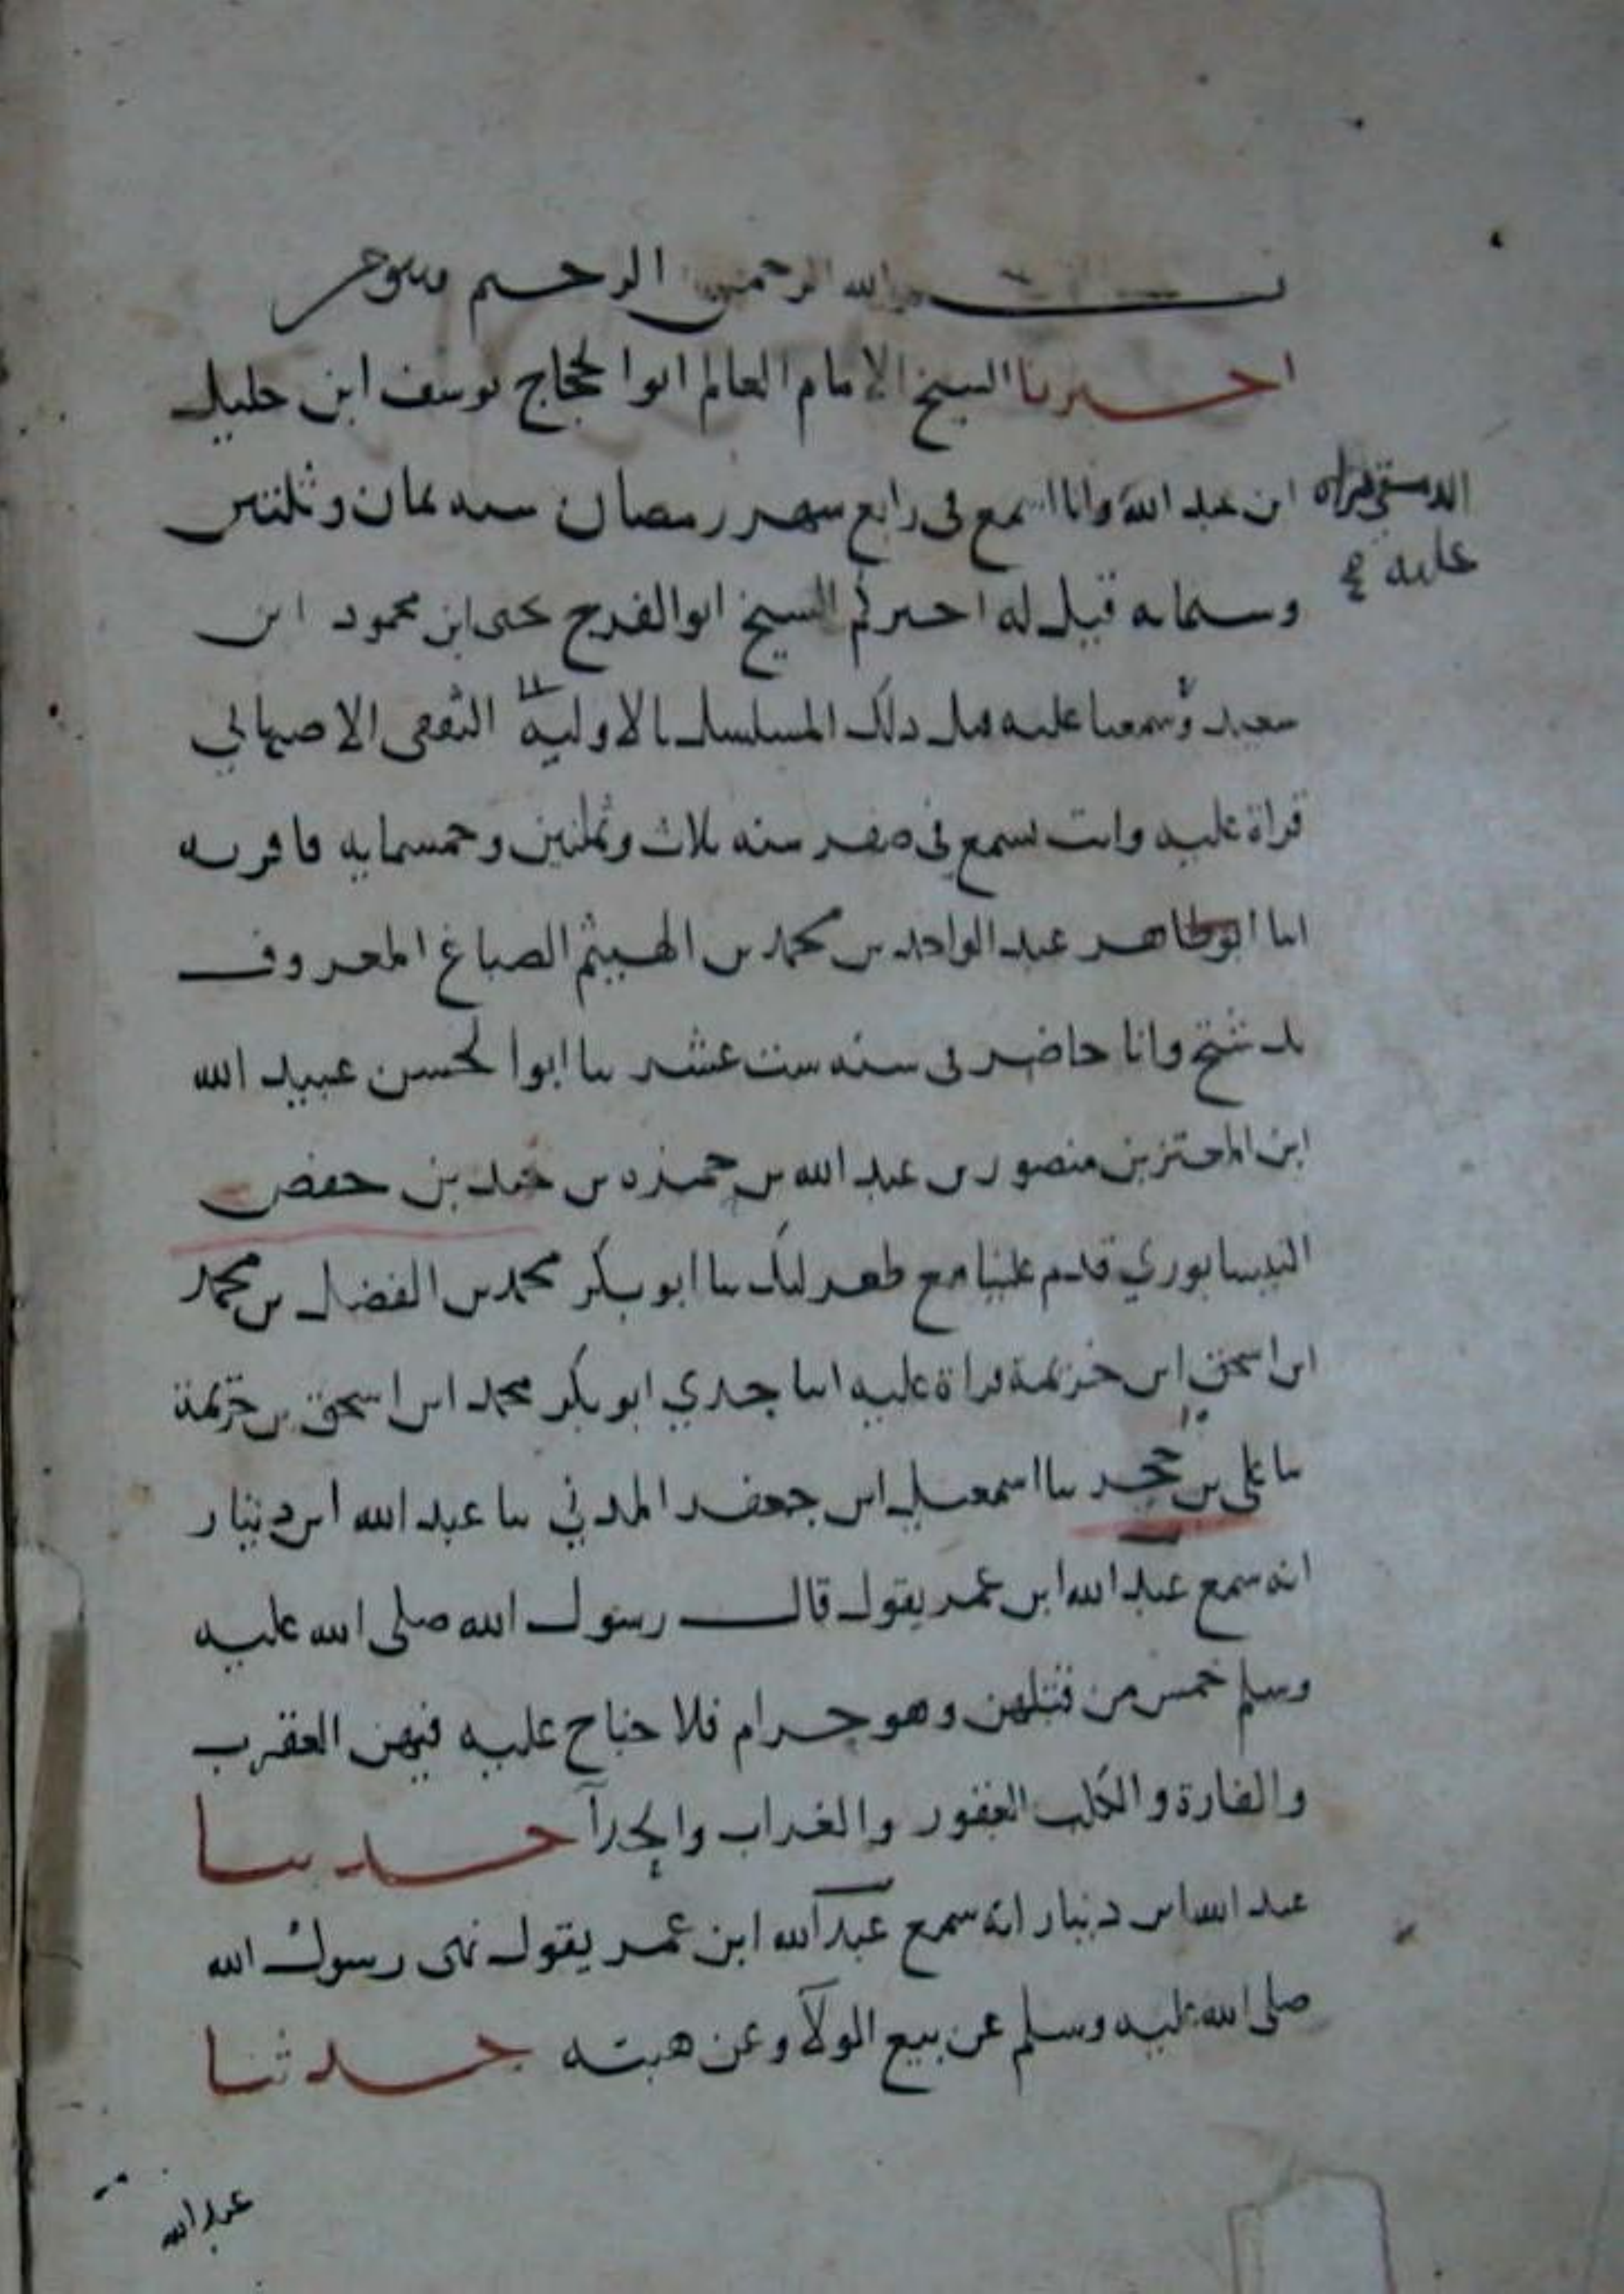 بسم الله الرحمن الرحيم
اخبرنا الشيخ الامام العالم ابوا الحجاج يوسف ابن خليل
ابن عبد الله وانا اسمع في رابع شهر رمضان سنه ثمان وثلثين
الدمشقي قراه
عليه صح
وستمايه قيل له اخبركم الشيخ ابو الفرج يحيى ابن محمود ابن
سعيد وسمعنا عليه قبل ذلك المسلسل بالاولية الثقفى الاصبهاني
قراة عليه وانت تسمع في صفر سنه ثلاث وثمنين وخمسمايه فاقر به
انا ابو طاهر عبد الواحد بن محمد بن الهيثم الصباغ المعروف
بدشتج وانا حاضر في سنه ست عشر نا ابوا الحسن عبيد الله
ابن المعتز بن منصور بن عبد الله بن حمزه بن بن حفص
النيسابوري قدم علينا مع طغرلبك نا ابو بكر محمد بن الفضل بن محمد
ابن اسحق ابن خزيمة قراة عليه انا جدي ابو بكر محمد ابن اسحق بن خزيمة
نا على بن حجر نا اسمعيل ابن جعفر المدني نا عبد الله ابن دينار
انه سمع عبد الله ابن عمر يقول قال رسول الله صلى الله عليه
وسلم خمس من قتلهن وهو حرام فلا جناح عليه فيهن العقرب
والفارة والكلب العقور والغراب والحدآ حدثنا
عبد الله ابن دينار انه سمع عبد الله ابن عمر يقول نهى رسول الله
صلى الله عليه وسلم عن بيع الولآ وعن هبته حدثنا
عبد الله